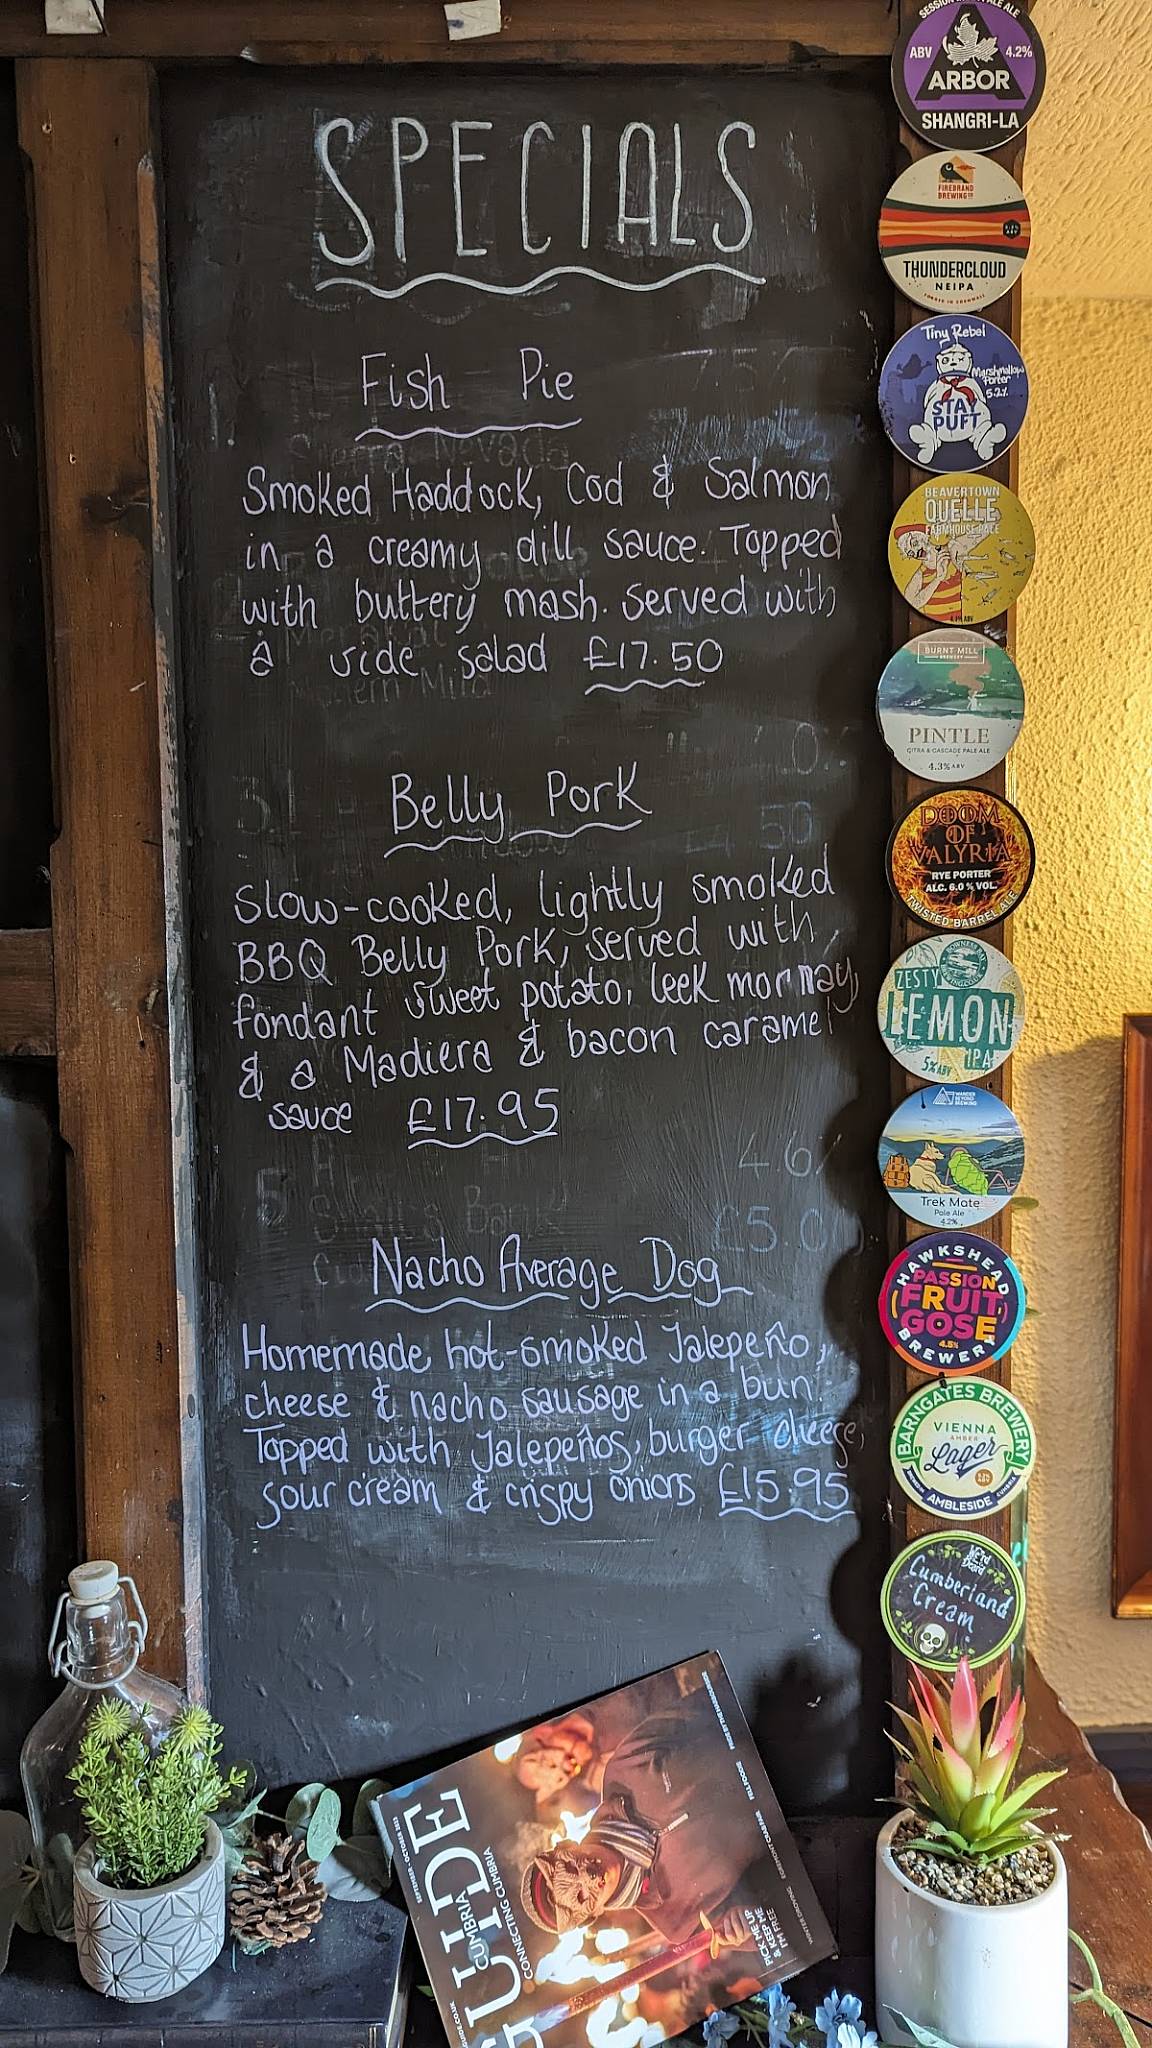 SPECIALS
Fish Pie
Smoked Haddock, Cod & Salmon
in a creamy dill sauce. Topped
with buttery mash. Served with
a side salad £17.50
Belly Pork
Slow-cooked, lightly smoked
BBQ Belly Pork, served with
fondant sweet potato, leek mornay,
& a Madiera & bacon caramel
sauce £17.95
Nacho Average Dog
Homemade hot-smoked Jalepeño,
cheese & nacho sausage in a bun.
Topped with Jalepeños, burger cheese,
sour cream & crispy onions £15.95
SESSION
ALE
ABV 4.2%
ARBOR
SHANGRI-LA
FIREBRAND
BREWING CO
THUNDERCLOUD
NEIPA
Tiny Rebel
Marshmallow
Porter
5.2%
STAY
PUFT
BEAVERTOWN
QUELLE
FARMHOUSE PALE
BURNT MILL
BREWERY
PINTLE
CITRA & CASCADE PALE ALE
4.3% ABV
DOOM
OF
VALYRIA
RYE PORTER
ALC. 6.0 % VOL.
TWISTED BARREL ALE
ZESTY
LEMON
IPA
5% ABV
WANDER
BEYOND
BREWING
Trek Mate
Pale Ale
4.2%
HAWKSHEAD
PASSION
FRUIT
GOSE
4.5%
BREWERY
BARNGATES BREWERY
VIENNA
AMBER
Lager
AMBLESIDE
CUMBRIA
Weird
Beard
Cumberland
Cream
£5.00
SEPTEMBER - OCTOBER
GUIDE
CUMBRIA
CONNECTING CUMBRIA
FELL FOODIE
EGREMONT CRAB FAIR
WINTER DROVING
PICK ME UP
& KEEP ME
I'M FREE